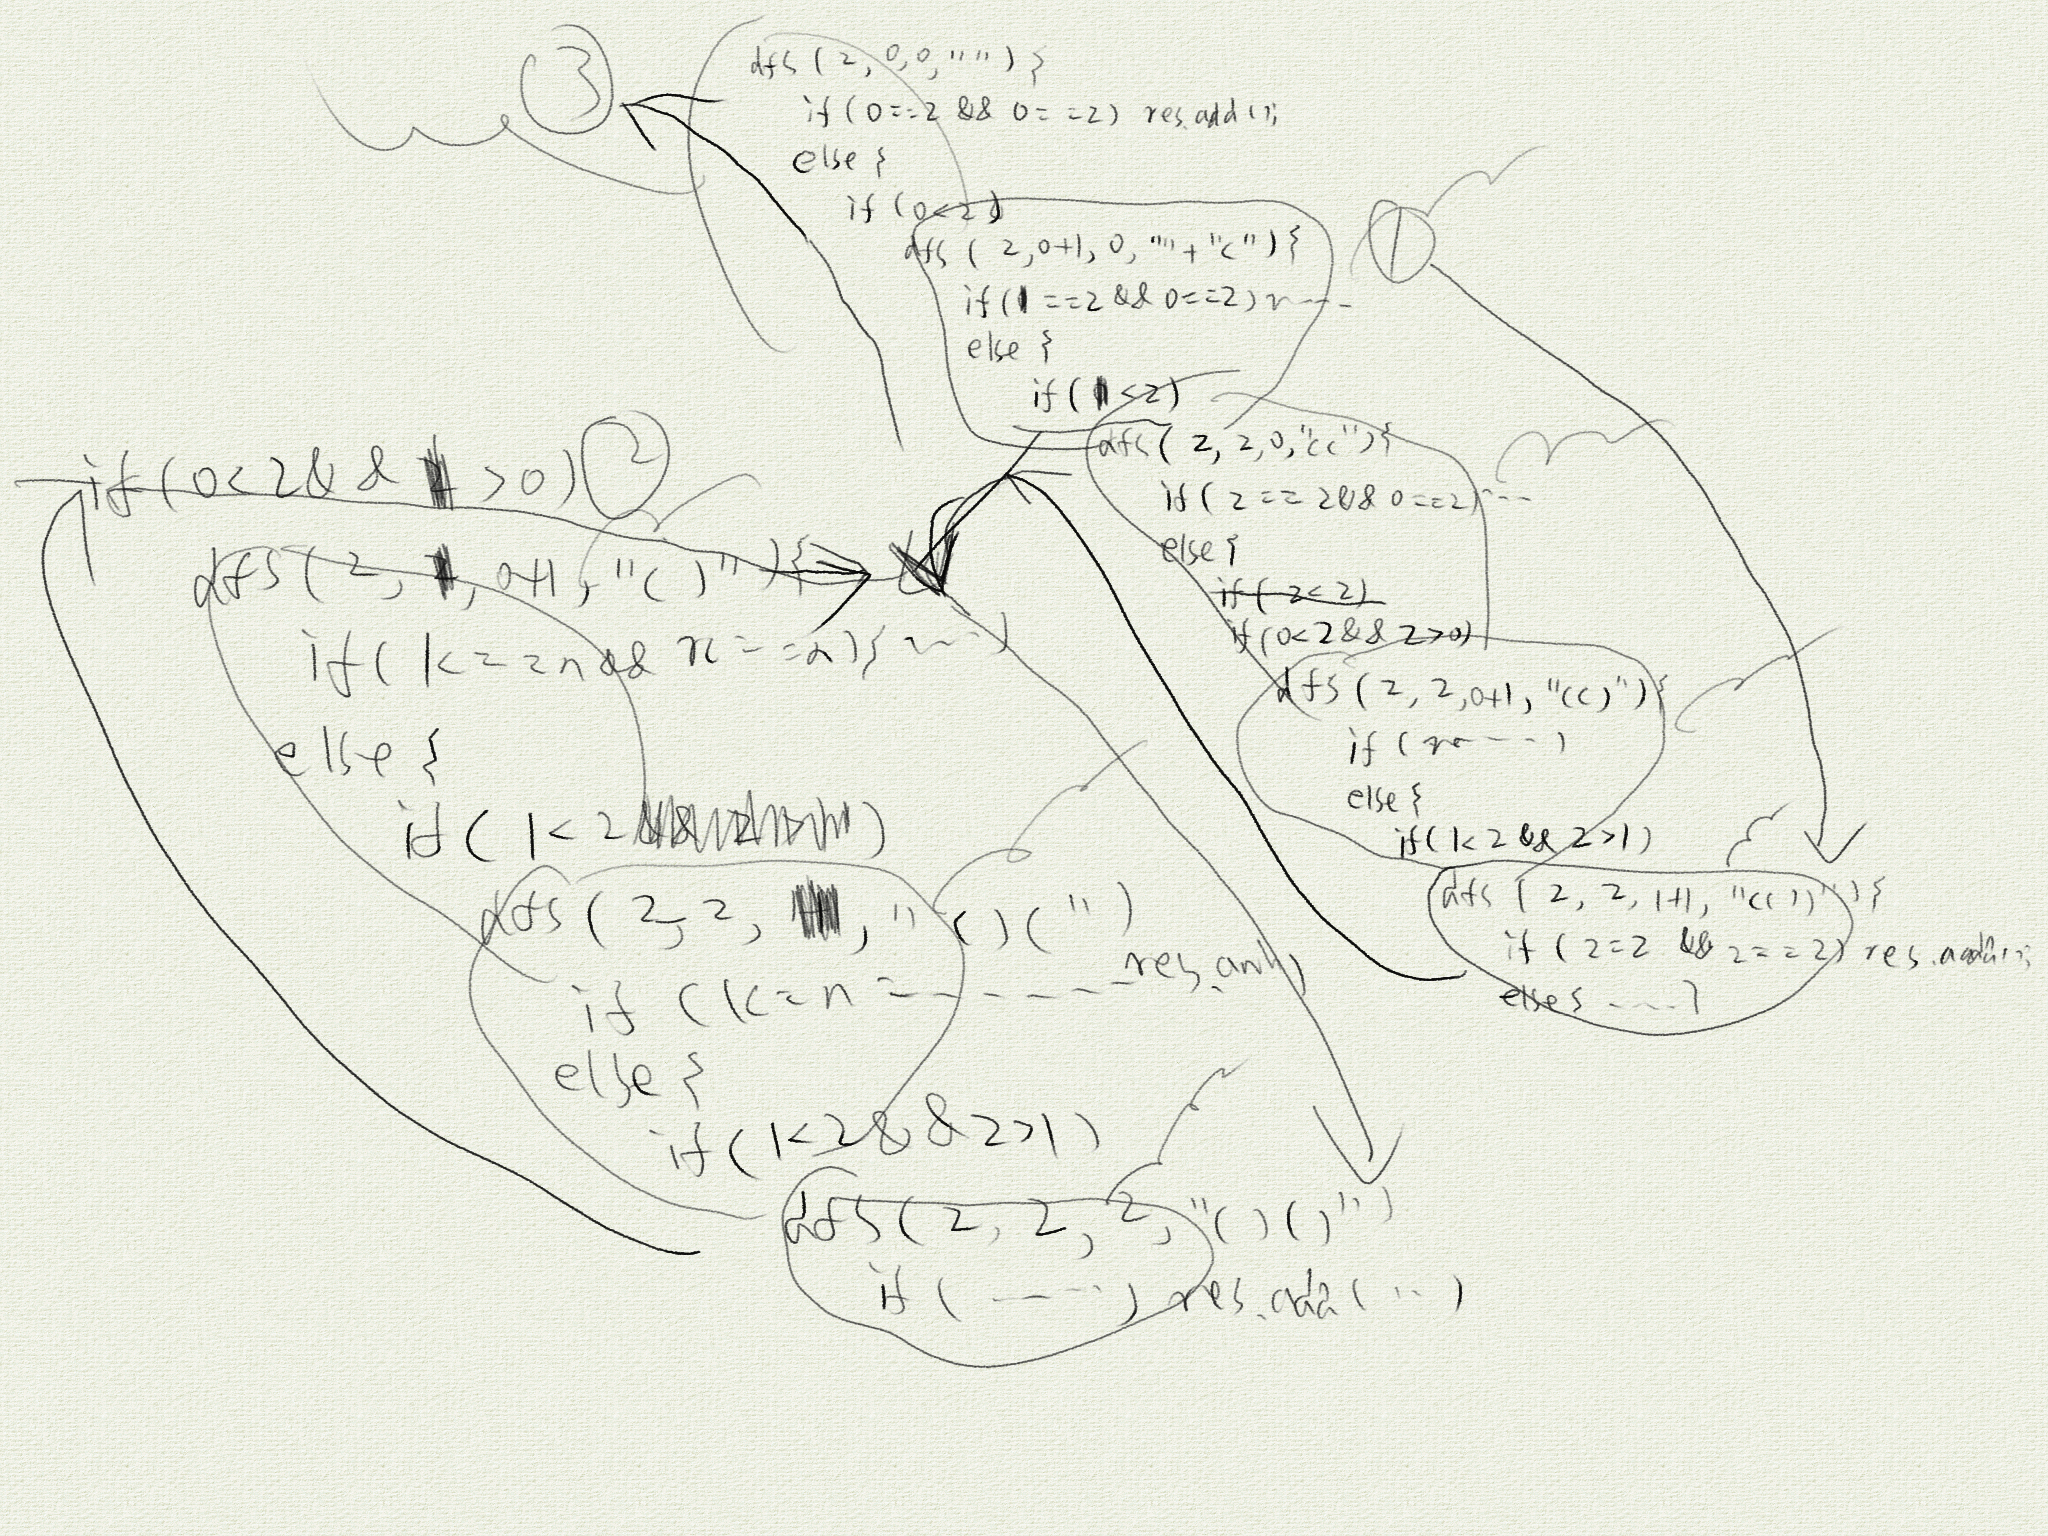 ③
dfs ( 2, 0,0, "" ) {
if ( 0==2 && 0==2) res.add();
else {
if (0<2)
①
dfs ( 2, 0+1, 0, ""+"(" ) {
if( 1 ==2 && 0==2)
else {
if( 1 <2)
dfs( 2, 2, 0, "((" ) {
if( 2 == 2 && 0==2) ---
else {
if( 2<2)
if(0<2 && 2>0)
dfs ( 2, 2, 0+1, "(()" ) {
if (
else {
if(1<2 && 2>1)
dfs ( 2, 2, 1+1, "(())" ) {
if ( 2=2 && 2==2) res.add();
else { ----}
if (0<2 && >0) ②
dfs ( 2, , 0+1, "()" ) {
if(
else {
if ( 1<2 )
dfs ( 2, 2, , "()(" )
if ( res.
else {
if ( 1<2 && 2>1 )
dfs ( 2, 2, 2, "()()" )
if ( ----- ) res.add( .. )